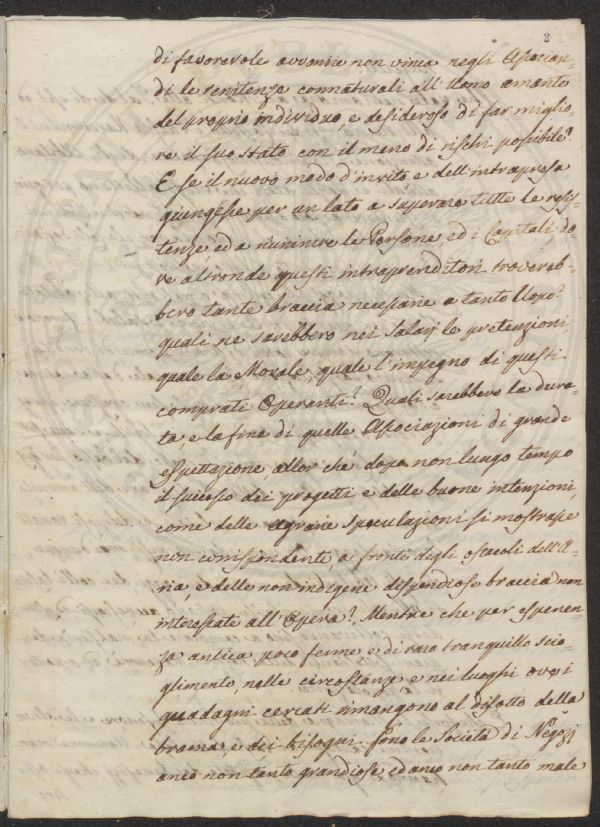 2
di favorevole avvenire non vinca negli Associan-
di le renitenze connaturali all'Uomo amante
del proprio individuo, e desideroso di far miglio-
re il suo stato con il meno di rischi possibile?
E se il nuovo modo d'invito, e dell'intrapresa
giungesse per un lato a superare tutte le resis-
tenze ed a riunire le Persone, ed i Capitali, do
ve altronde questi intraprenditori trovereb-
bero tante braccia necessarie a tanto Uopo?
quali ne sarebbero nei Salarj le pretenzioni,
quale la Morale, quale l'impegno di questi
comprati Operanti? Quali sarebbero la dura-
ta, e la fine di quelle Associazioni di grande
espettazione, allor ché dopo non lungo tempo
il successo dei progetti e delle buone intenzioni,
come delle agrarie speculazioni si mostrasse
non corrispondente, a fronte degli ostacoli dell'A-
ria, e delle non indigene dispendiose braccia non
interessate all'Opera? Mentre che per esperien-
za antica poco ferme e di raro tranquillo scio-
glimento, nelle circostanze, e nei luoghi ove i
guadagni cercati rimangono al disotto della
brama e dei bisogni sono le Società di Negozj
anco non tanto grandiose, ed anco non tanto male